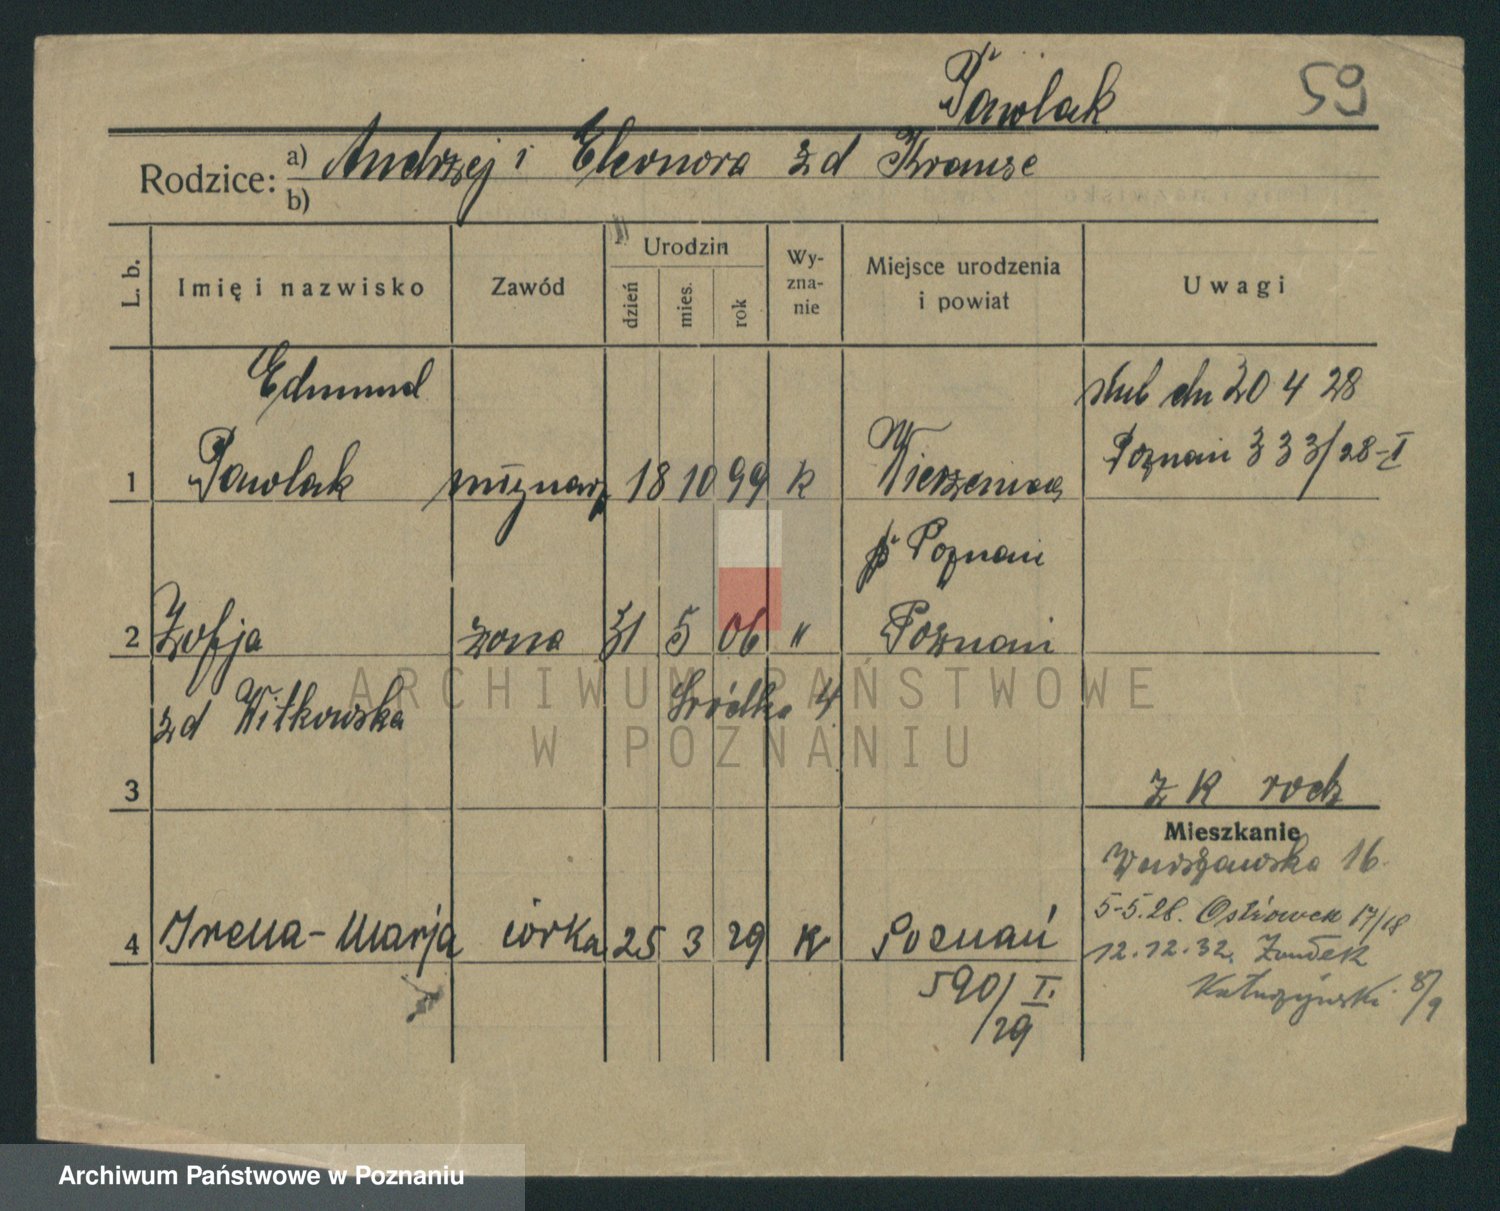 Pawlak
59
Rodzice: a) Andrzej i Eleonora zd Krause
b)
L. b.
Imię i nazwisko
Zawód
Urodzin
dzień
mies.
rok
Wy-
zna-
nie
Miejsce urodzenia
i powiat
Uwagi
Edmund
ślub dn 20 4 28
1 Pawlak 18 10 99 k
Poznań 333/28-I
p Poznań
2 Zofja żona 31 5 06 " Poznań
zd Witkowska Śródka 4
3
z k rodz
Mieszkanie
Warszawska 16
5-5.28. Ostrówek 17/18
4 Irena-Marja córka 25 3 29 k Poznań
12.12.32.
590/I.
/29
8/9
ARCHIWUM PAŃSTWOWE
W POZNANIU
Archiwum Państwowe w Poznaniu